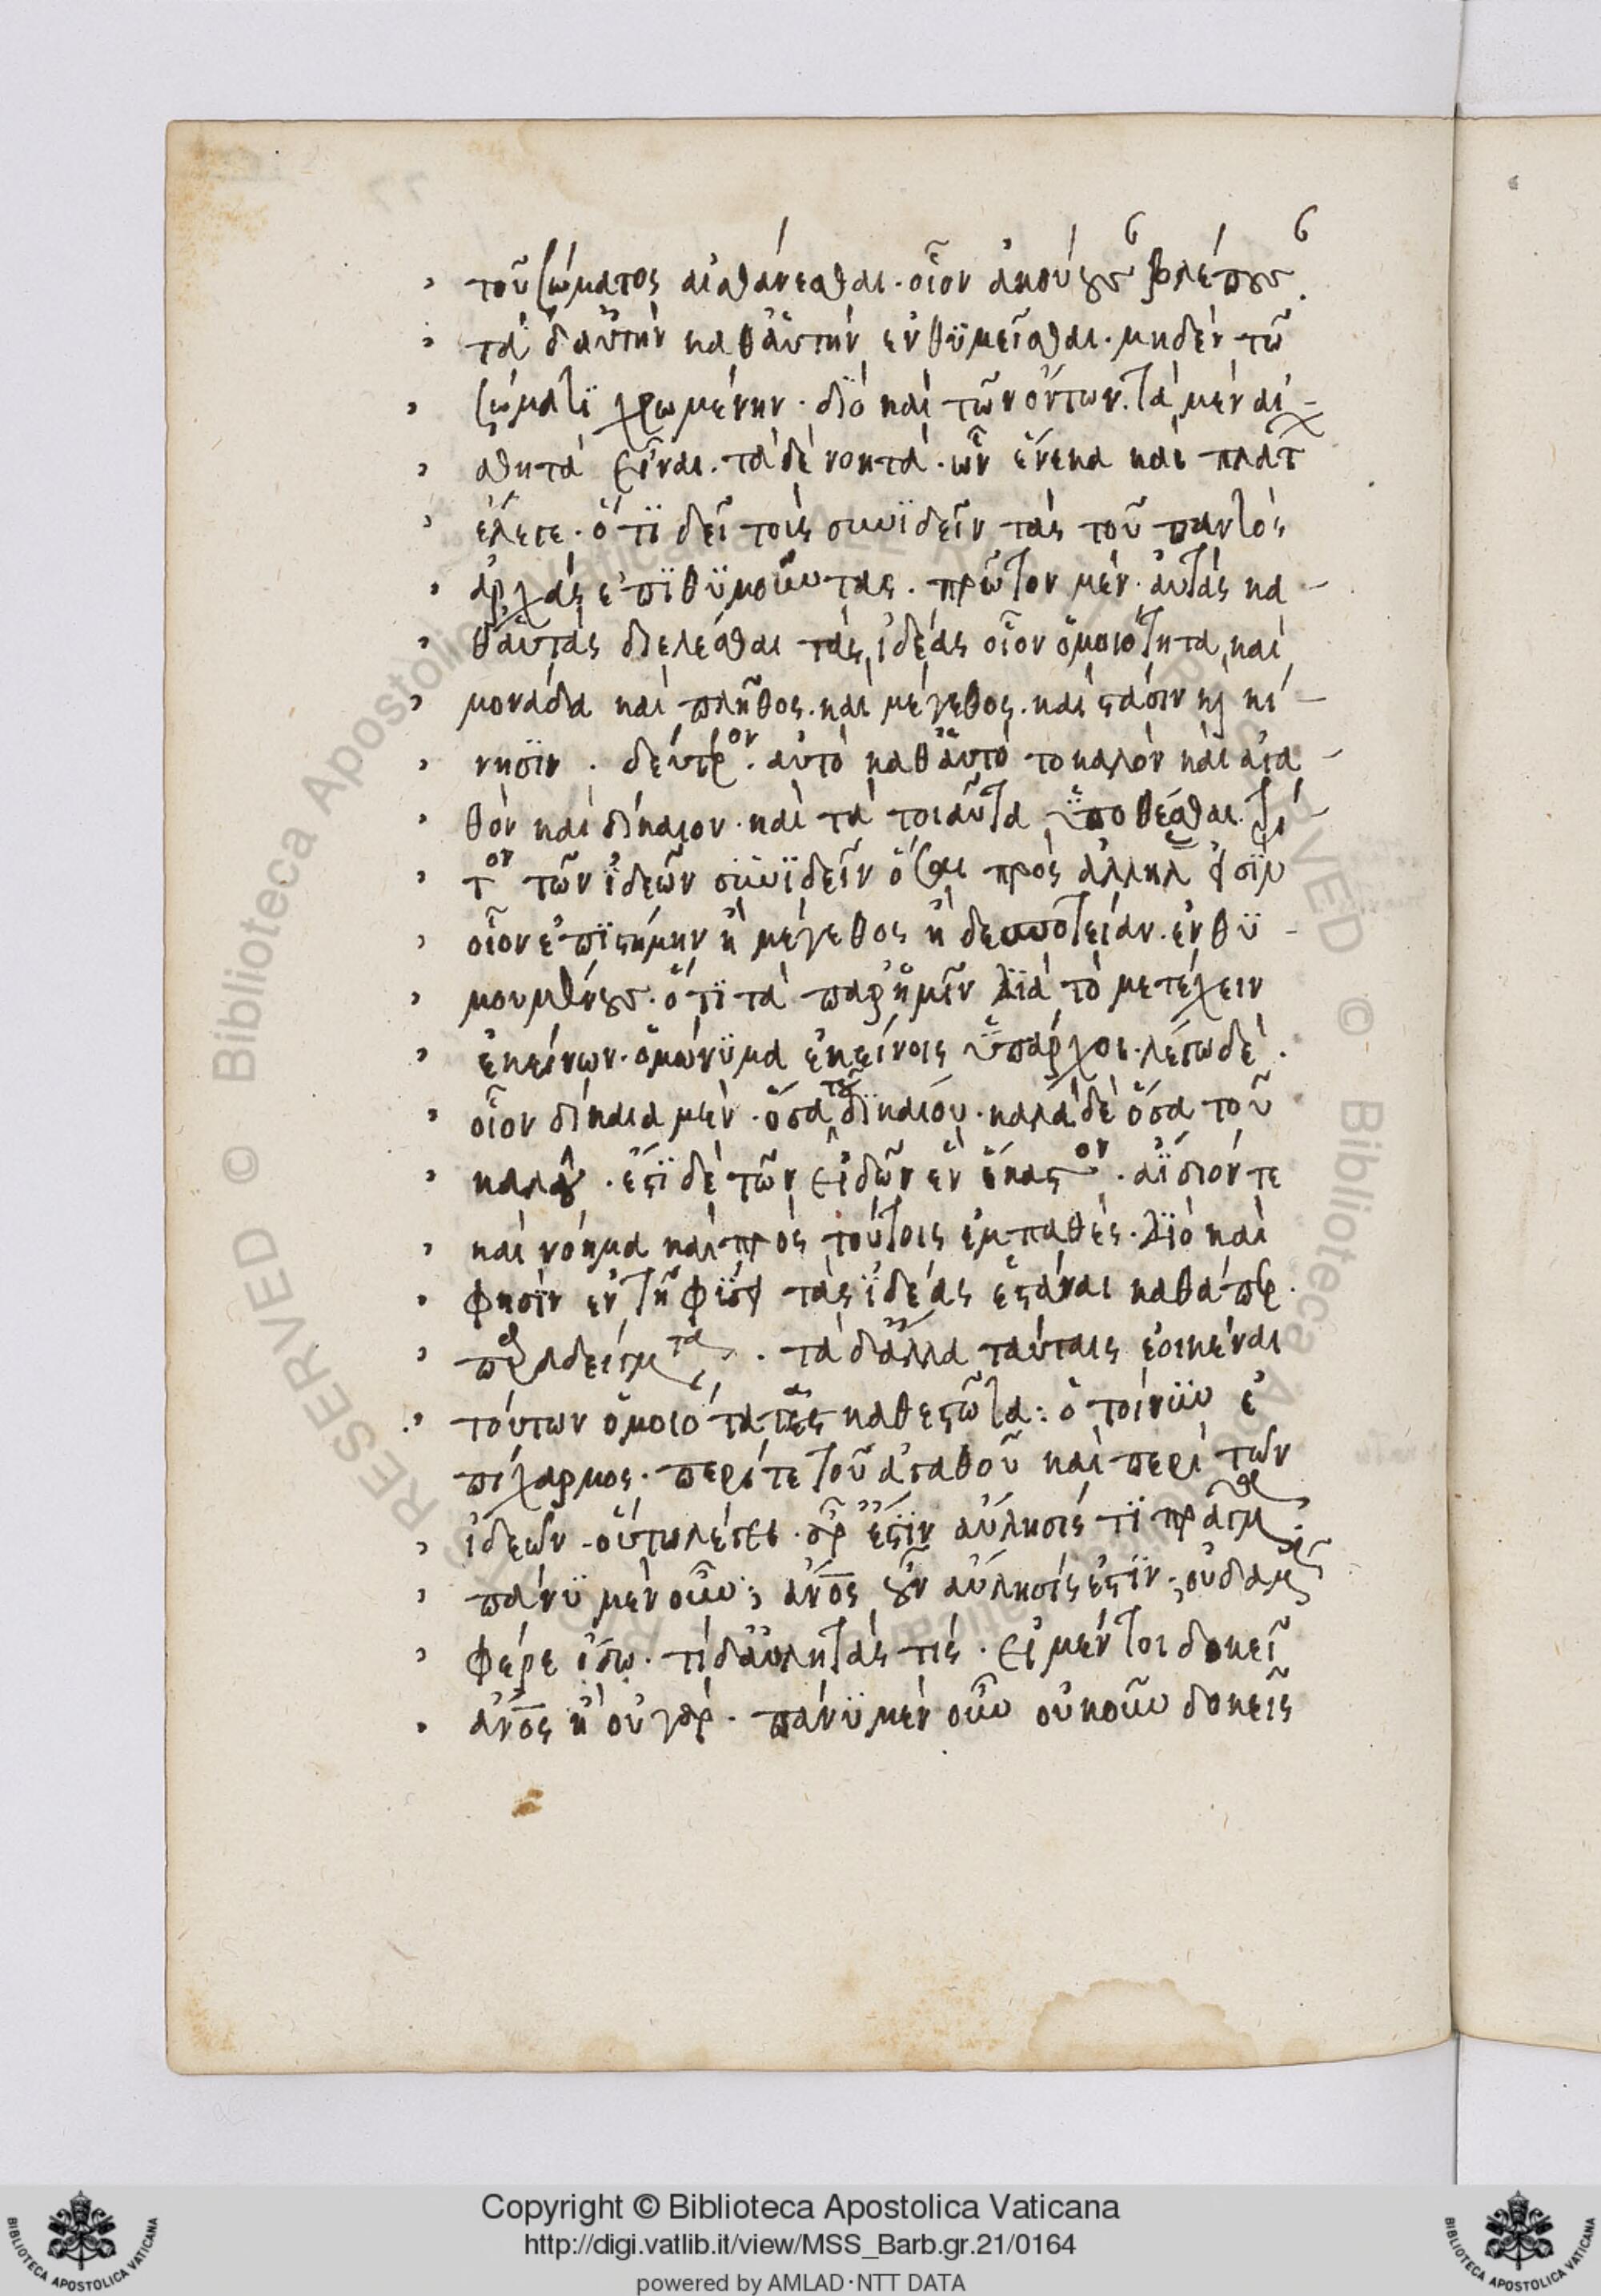 τοῦ σώματος αἰσθάνεσθαι· οἷον ἀκούουσαν βλέπουσαν.
τὰ δ' αὐτὴν καθ' αὑτὴν ἐνθυμεῖσθαι· μηδὲν τῶ
σώματι χρωμένην· διὸ καὶ τῶν ὄντων. τὰ μὲν αἰ-
σθητὰ εἶναι. τὰ δὲ νοητά· ὧν ἕνεκα καὶ πλάτ
ἔλεγε· ὅτι δεῖ τοῖς συνιδεῖν τὰς τοῦ παντὸς
ἀρχὰς ἐπιθυμοῦντας. πρῶτον μὲν αὐτὰς κα-
θ' αὑτὰς διελέσθαι τὰς ἰδέας οἷον ὁμοιότητα, καὶ
μονάδα καὶ πλῆθος. καὶ μέγεθος. καὶ στάσιν καὶ κί-
νησιν. δεύτερον. αὐτὸ καθ' αὑτὸ τὸ καλὸν καὶ ἀγα-
θὸν καὶ δίκαιον. καὶ τὰ τοιαῦτα ὑποθέσθαι. τρί-
τον τῶν ἰδεῶν συνϊδεῖν ὅσαι πρὸς ἀλλήλ εἰσὶν
οἷον ἐπιστήμην ἢ μέγεθος ἢ δεσποτείαν. ἐνθυ-
μουμένους· ὅτι τὰ παρ' ἡμῖν διὰ τὸ μετέχειν
ἐκείνων· ὁμώνυμα ἐκείνοις ὑπάρχοι. λέγω δὲ.
οἷον δίκαια μὲν. ὅσα τοῦ δικαίου. καλὰ δὲ ὅσα τοῦ
καλοῦ. ἔστι δὲ τῶν εἰδῶν ἓν ἕκαστον. ἀΐδιόν τε
καὶ νόημα καὶ πρὸς τούτοις ἐμπαθές. διὸ καὶ
φησὶν ἐν τῇ φύσει τὰς ἰδέας ἑστάναι καθάπερ.
παραδείγματα. τὰ δ' ἄλλα ταύταις ἐοικέναι
τούτων ὁμοιότατες καθεστῶτα: ὁ τοίνυν ἐ
πίχαρμος. περί τε τοῦ ἀγαθοῦ καὶ περὶ τῶν
ἰδεῶν. οὕτω λέγει. ἆρ' ἔστιν αὔλησίς τι πρᾶγμα;
πάνυ μὲν οὖν; ἄνος οὖν αὔλησίς ἐστιν; οὐδαμῶς
φέρε ἴδω. τί δ' αὐλητάς τίς. εἶ μέν τοι δοκεῖ
ἄνος ἢ οὐ γάρ. πάνυ μὲν οὖν οὐκοῦν δοκεῖς
Copyright © Biblioteca Apostolica Vaticana
http://digi.vatlib.it/view/MSS_Barb.gr.21/0164
powered by AMLAD·NTT DATA